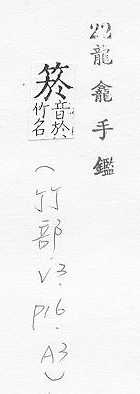 22龍龕手鑑
箊音於竹名
(竹部.V3.P16.A3)